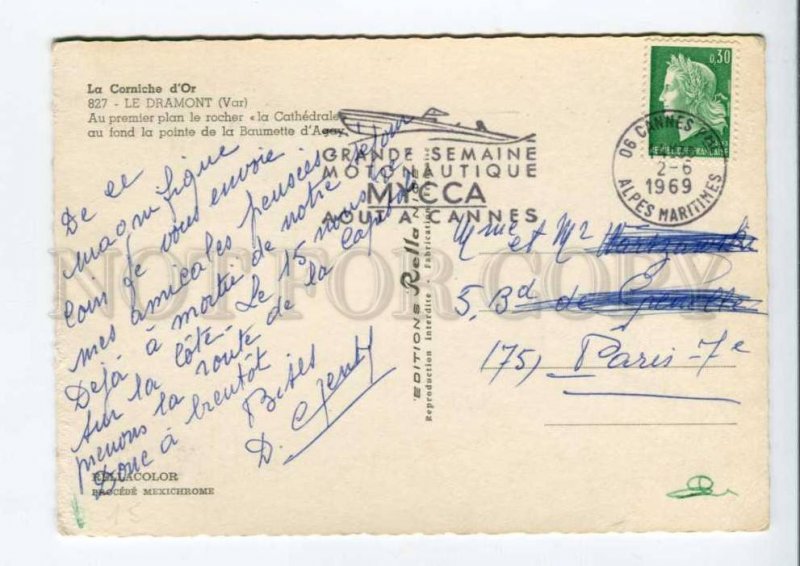 La Corniche d'Or
827 - LE DRAMONT (Var)
Au premier plan le rocher «la Cathédrale»
au fond la pointe de la Baumette d'Agay
GRANDE SEMAINE
MOTONAUTIQUE
MYCCA
AOUT A CANNES
0,30
REPUBLIQUE FRANCAISE
06 CANNES
2-6
1969
ALPES MARITIMES
De ce
magnifique
coin je vous envoie
mes amicales pensées
Déjà à moitié de notre séjour
sur la côte. Le 15 nous
prenons la route de la Capitale
Donc à bientôt
Bises
D.
EDITIONS Rella NICE
Reproduction interdite - Fabrication
Mme et Mr
5, Bd de
175, Paris-7e
RELLACOLOR
PROCÉDÉ MEXICHROME
15
NOT FOR COPY